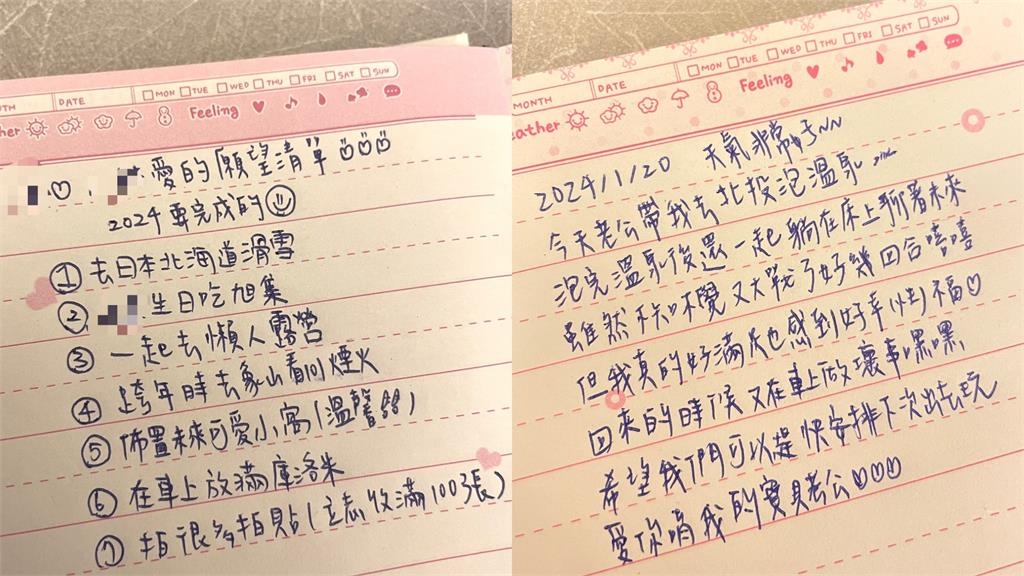 MONTH DATE MON TUE WED THU FRI SAT SUN
Weather Feeling
愛的「願望清單
2024要完成的
① 去日本北海道滑雪
② 生日吃旭集
③ 一起去懶人露營
④ 跨年時去象山看101煙火
⑤ 佈置未來可愛小窩(溫馨)
⑥ 在車上放滿庫洛米
⑦ 拍很多拍貼(立志收滿100張)
MONTH DATE MON TUE WED THU FRI SAT SUN
Weather Feeling
2024/1/20 天氣非常好~~
今天老公帶我去北投泡溫泉~
泡完溫泉後還一起躺在床上聊著未來
雖然不知不覺又大戰了好幾回合嘻嘻
但我真的好滿足也感到好幸(性)福♡
回來的時候又在車上做壞事嘿嘿
希望我們可以趕快安排下次出去玩
愛你唷我的寶貝老公♡♡♡